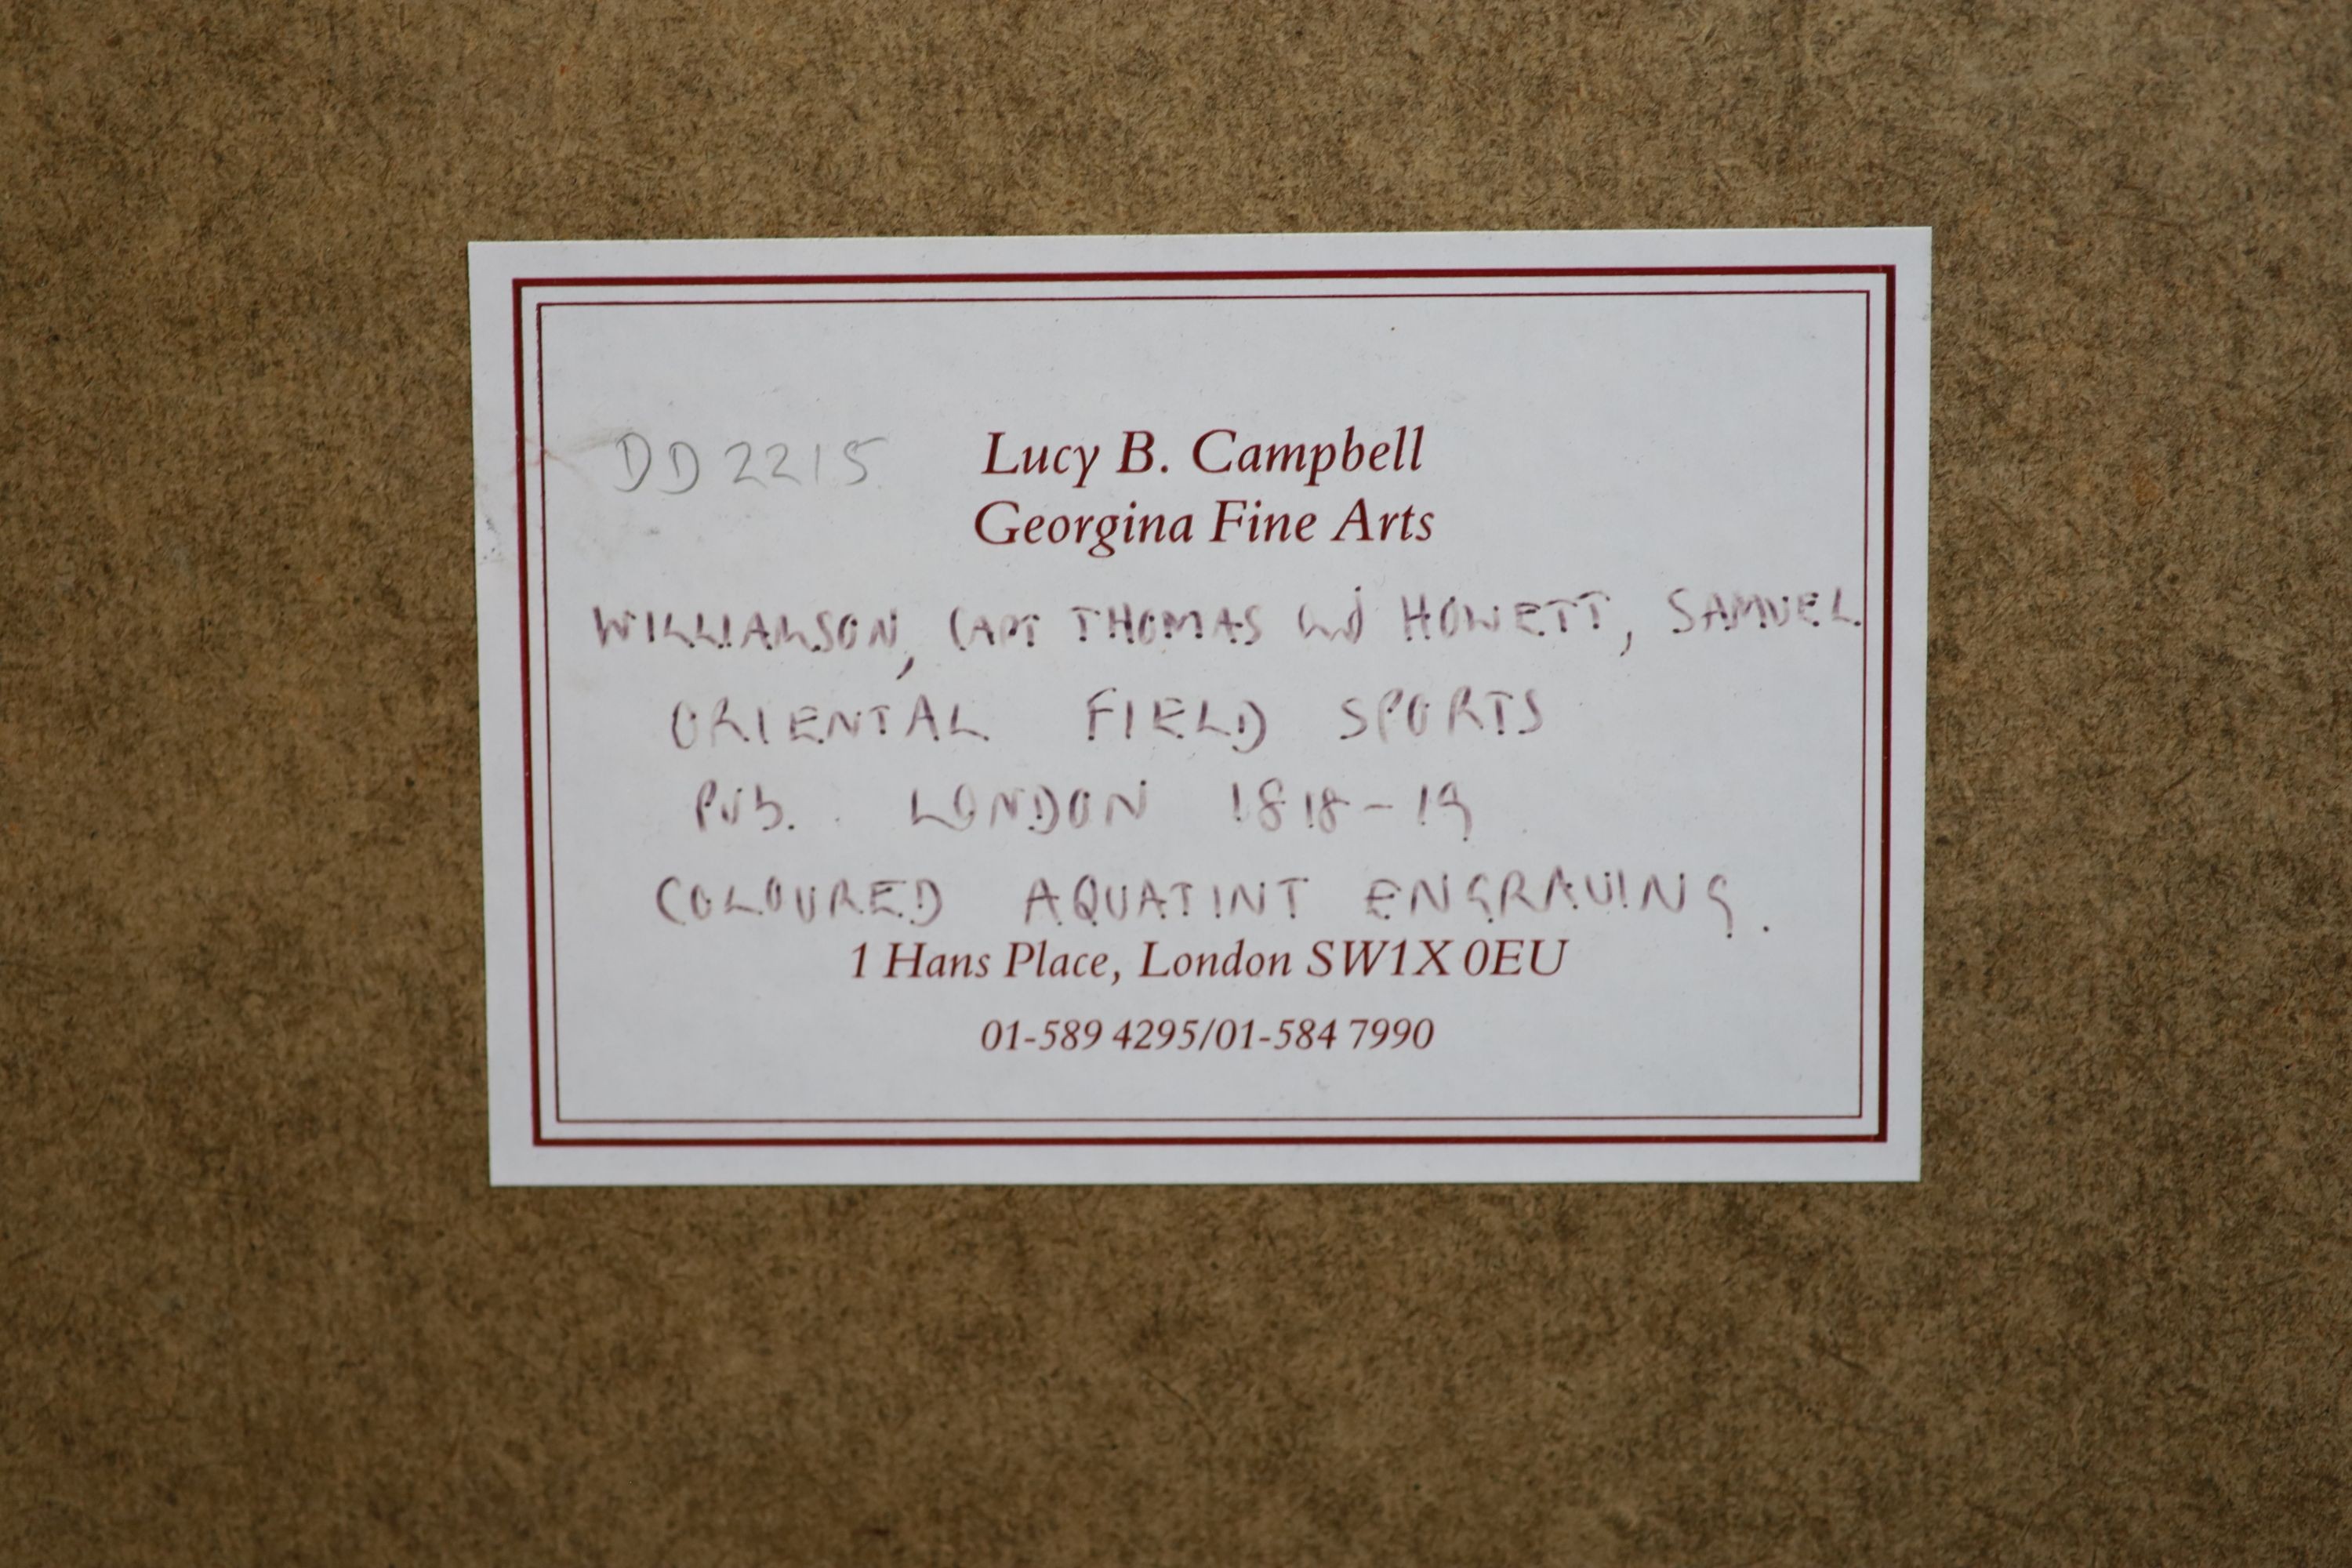 DD2215
Lucy B. Campbell
Georgina Fine Arts
WILLIAMSON, CAPT THOMAS and HOWETT, SAMUEL.
ORIENTAL FIELD SPORTS
PUB. LONDON 1818-19
COLOURED AQUATINT ENGRAVING.
1 Hans Place, London SW1X 0EU
01-589 4295/01-584 7990